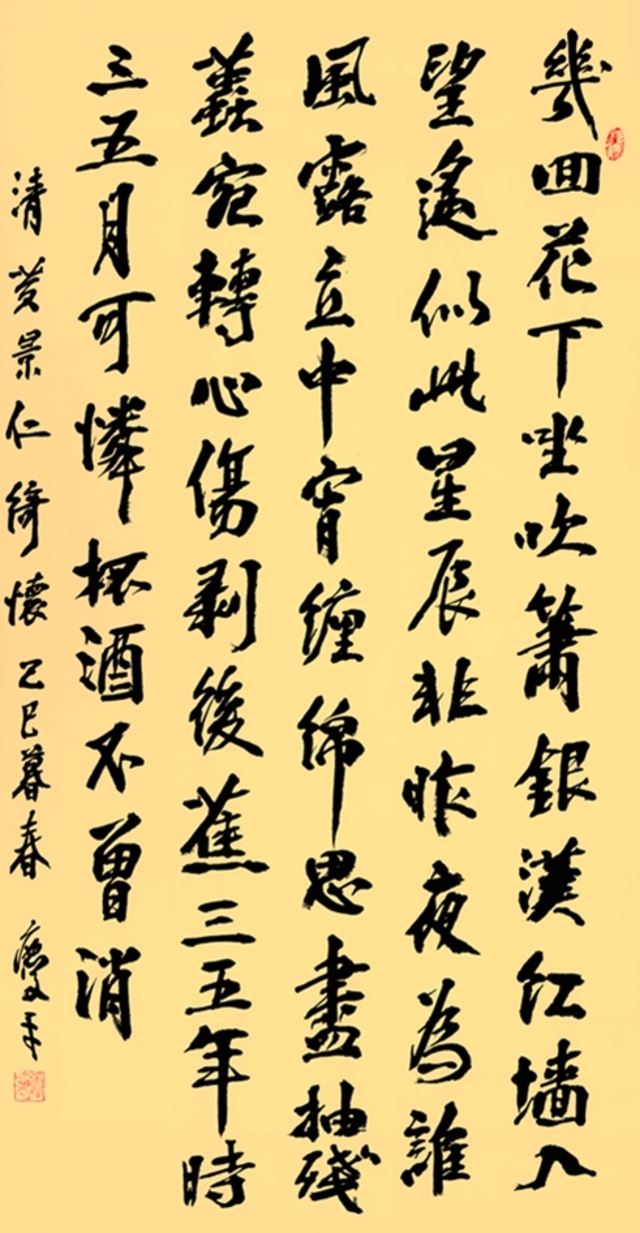 幾回花下坐吹簫銀漢紅墻入
望遙似此星辰非昨夜為誰
風露立中宵纏綿思盡抽殘
繭宛轉心傷剥後蕉三五年時
三五月可憐杯酒不曾消
清黃景仁綺懷乙巳暮春